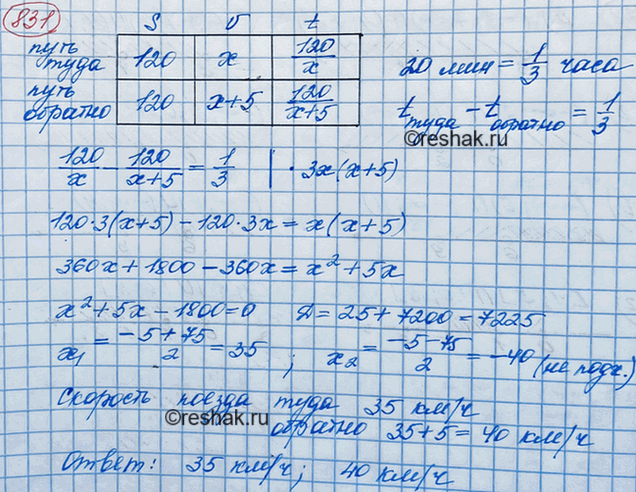 831
S v t
путь туда 120 x 120/x
путь обратно 120 x+5 120/(x+5)
20 мин = 1/3 часа
t туда - t обратно = 1/3
©reshak.ru
120/x - 120/(x+5) = 1/3 | · 3x(x+5)
120·3(x+5) - 120·3x = x(x+5)
360x + 1800 - 360x = x² + 5x
x² + 5x - 1800 = 0 D = 25 + 7200 = 7225
x₁ = (-5+75)/2 = 35 ; x₂ = (-5-75)/2 = -40 (не подх.)
Скорость поезда туда 35 км/ч
©reshak.ru
обратно 35+5 = 40 км/ч
Ответ: 35 км/ч; 40 км/ч